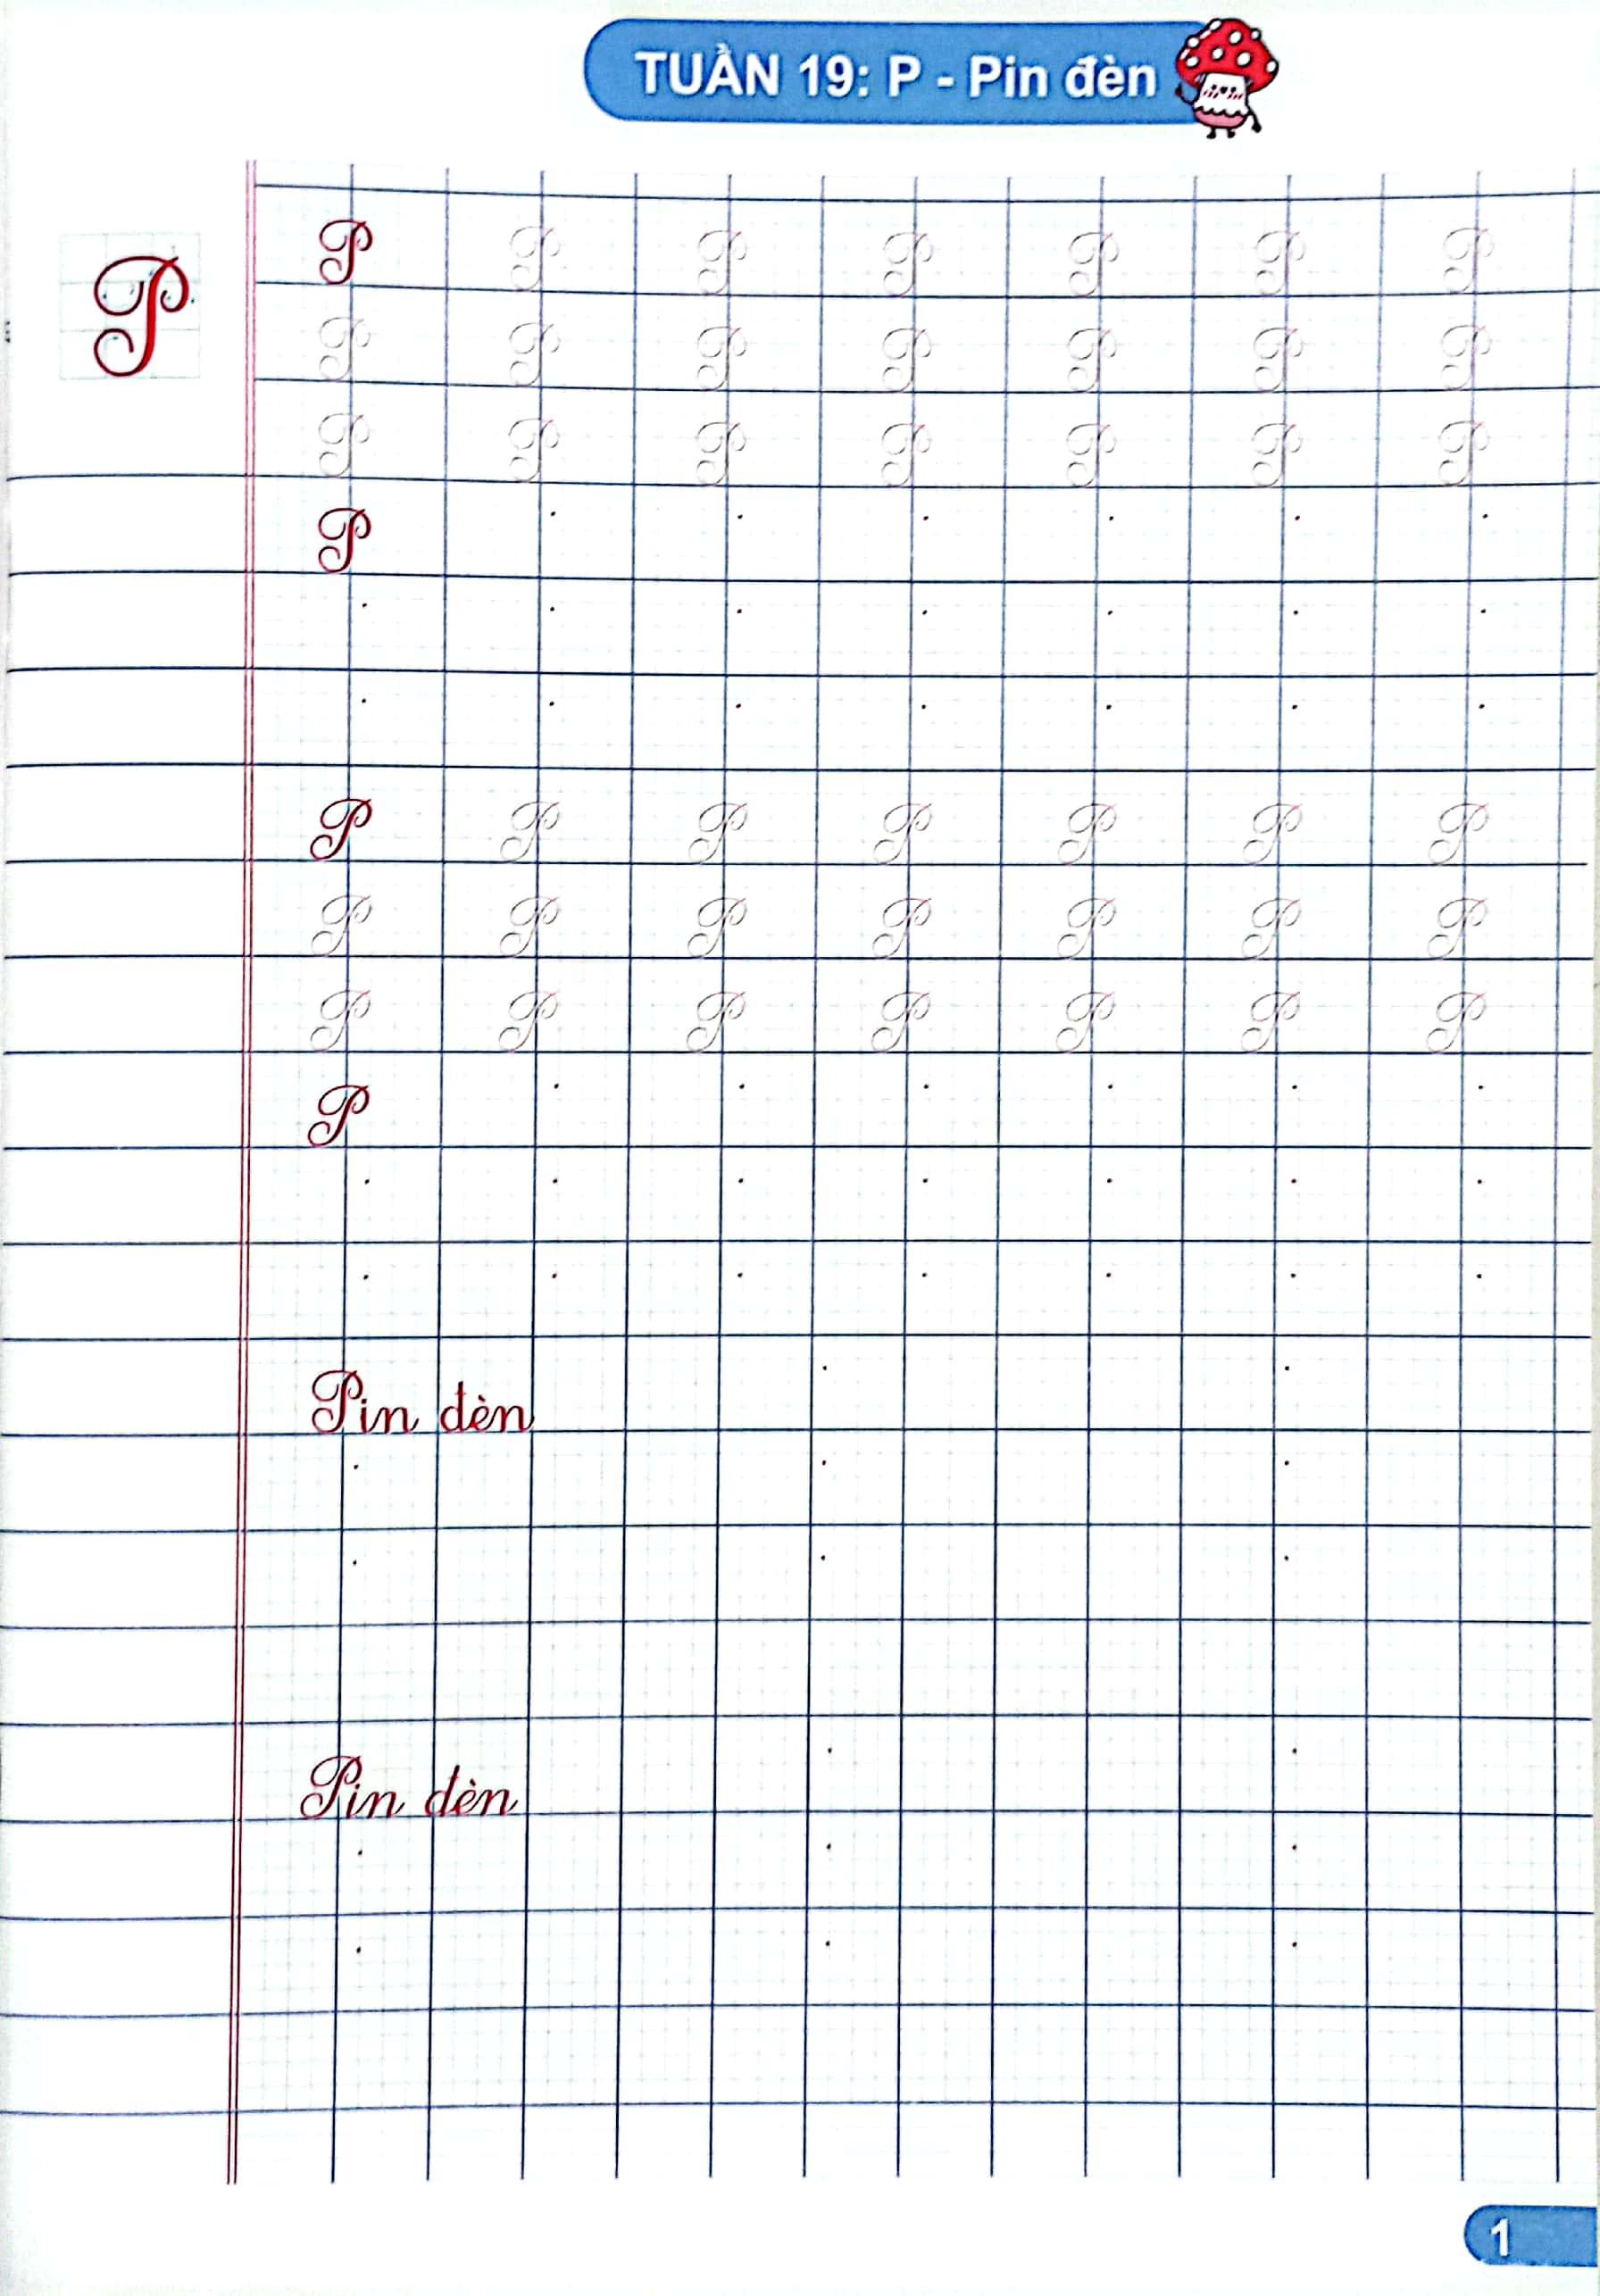 TUẦN 19: P - Pin đèn
P
P P P P P P P
P P P P P P P
P P P P P P P
P
P P P P P P P
P P P P P P P
P P P P P P P
P
Pin đèn
Pin đèn
1